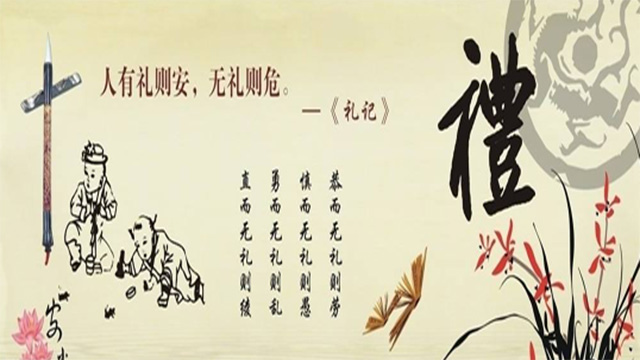 人有礼则安，无礼则危。
—《礼记》
禮
恭而无礼则劳
慎而无礼则愚
勇而无礼则乱
直而无礼则